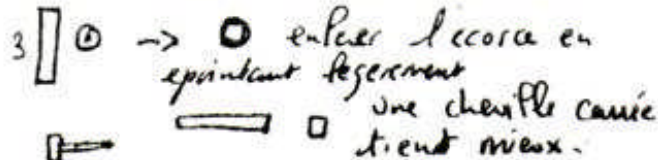 3 -> enlever l'ecorce en
epointant legerement
une cheville carrée
tient mieux.